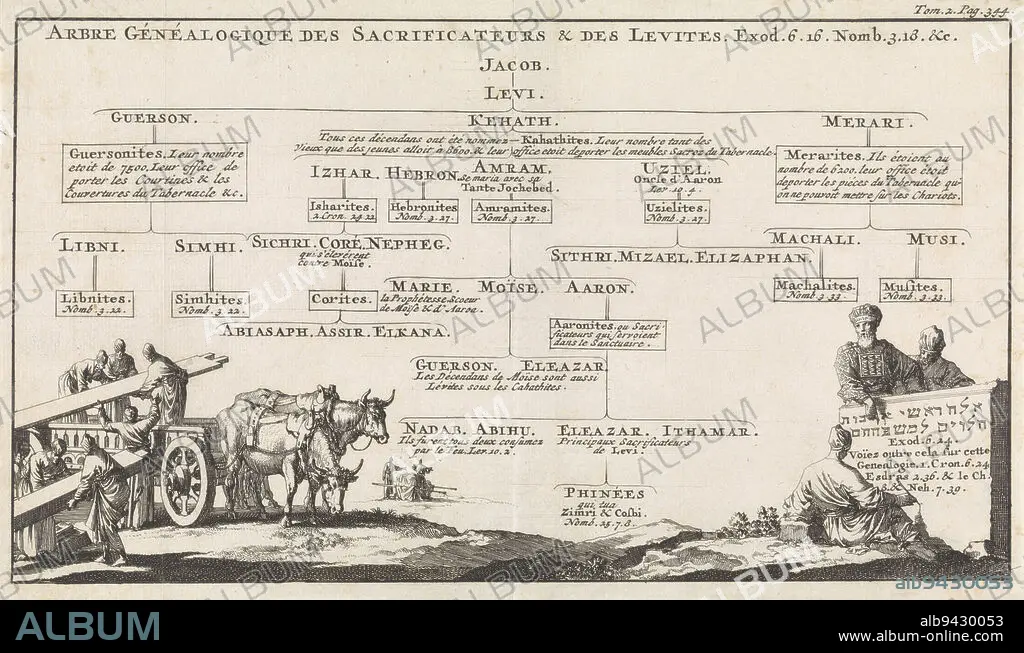 Tom. 2. Pag. 344.
ARBRE GÉNÉALOGIQUE DES SACRIFICATEURS & DES LEVITES. Exod. 6. 16. Nomb. 3. 18. &c.
JACOB.
LEVI.
GUERSON.
KEHATH.
MERARI.
Tous ces décendans ont été nommez Kahathites. Leur nombre tant des
Vieux que des jeunes alloit à 8600. & leur office etoit de porter les meubles Sacrez du Tabernacle.
Guersonites. Leur nombre
etoit de 7500. Leur office de
porter les Courtines & les
Couvertures du Tabernacle &c.
Merarites. Ils étoient au
nombre de 6200. leur office étoit
de porter les piéces du Tabernacle qu'
on ne pouvoit mettre sur les Chariots.
IZHAR. HEBRON.
AMRAM.
Se maria avec sa
Tante Jochebed.
UZIEL.
Oncle d'Aaron
Lev. 10. 4.
Isharites.
2. Cron. 24 22.
Hebronites
Nomb. 3. 27.
Amramites.
Nomb. 3. 27.
Uzielites.
Nomb. 3. 27.
LIBNI.
SIMHI.
SICHRI. CORÉ. NEPHEG.
qui s'éleverent
contre Moïse.
SITHRI. MIZAEL. ELIZAPHAN.
MACHALI.
MUSI.
Libnites.
Nomb. 3. 22.
Simhites.
Nomb. 3. 22.
Corites.
Machalites.
Nomb. 3. 33.
Musites.
Nomb. 3. 33.
MARIE. MOÏSE. AARON.
la Prophétesse Scoeur
de Moïse & d'Aaron
ABIASAPH. ASSIR. ELKANA.
Aaronites. ou Sacri-
ficateurs qui servoient
dans le Sanctuaire.
GUERSON. ELEAZAR.
Les Décendans de Moïse sont aussi
Lévites sous les Cahathites.
NADAB. ABIHU.
Ils furent tous deux consumez
par le Feu. Lev. 10. 2.
ELEAZAR. ITHAMAR.
Principaux Sacrificateurs
de Levi.
PHINÉES
qui tua
Zimri & Cosbi
Nomb. 25. 7. 8.
אלה ראשי אבות
הלוים למשפחתם
Exod. 6. 24.
Voïez outre cela sur cette
Genealogie. 1. Cron. 6. 24.
Esdras 2. 36. & le Ch.
& Neh. 7. 39.
ALBUM
alb9430053
ALBUM
alb9430053
www.album-online.com